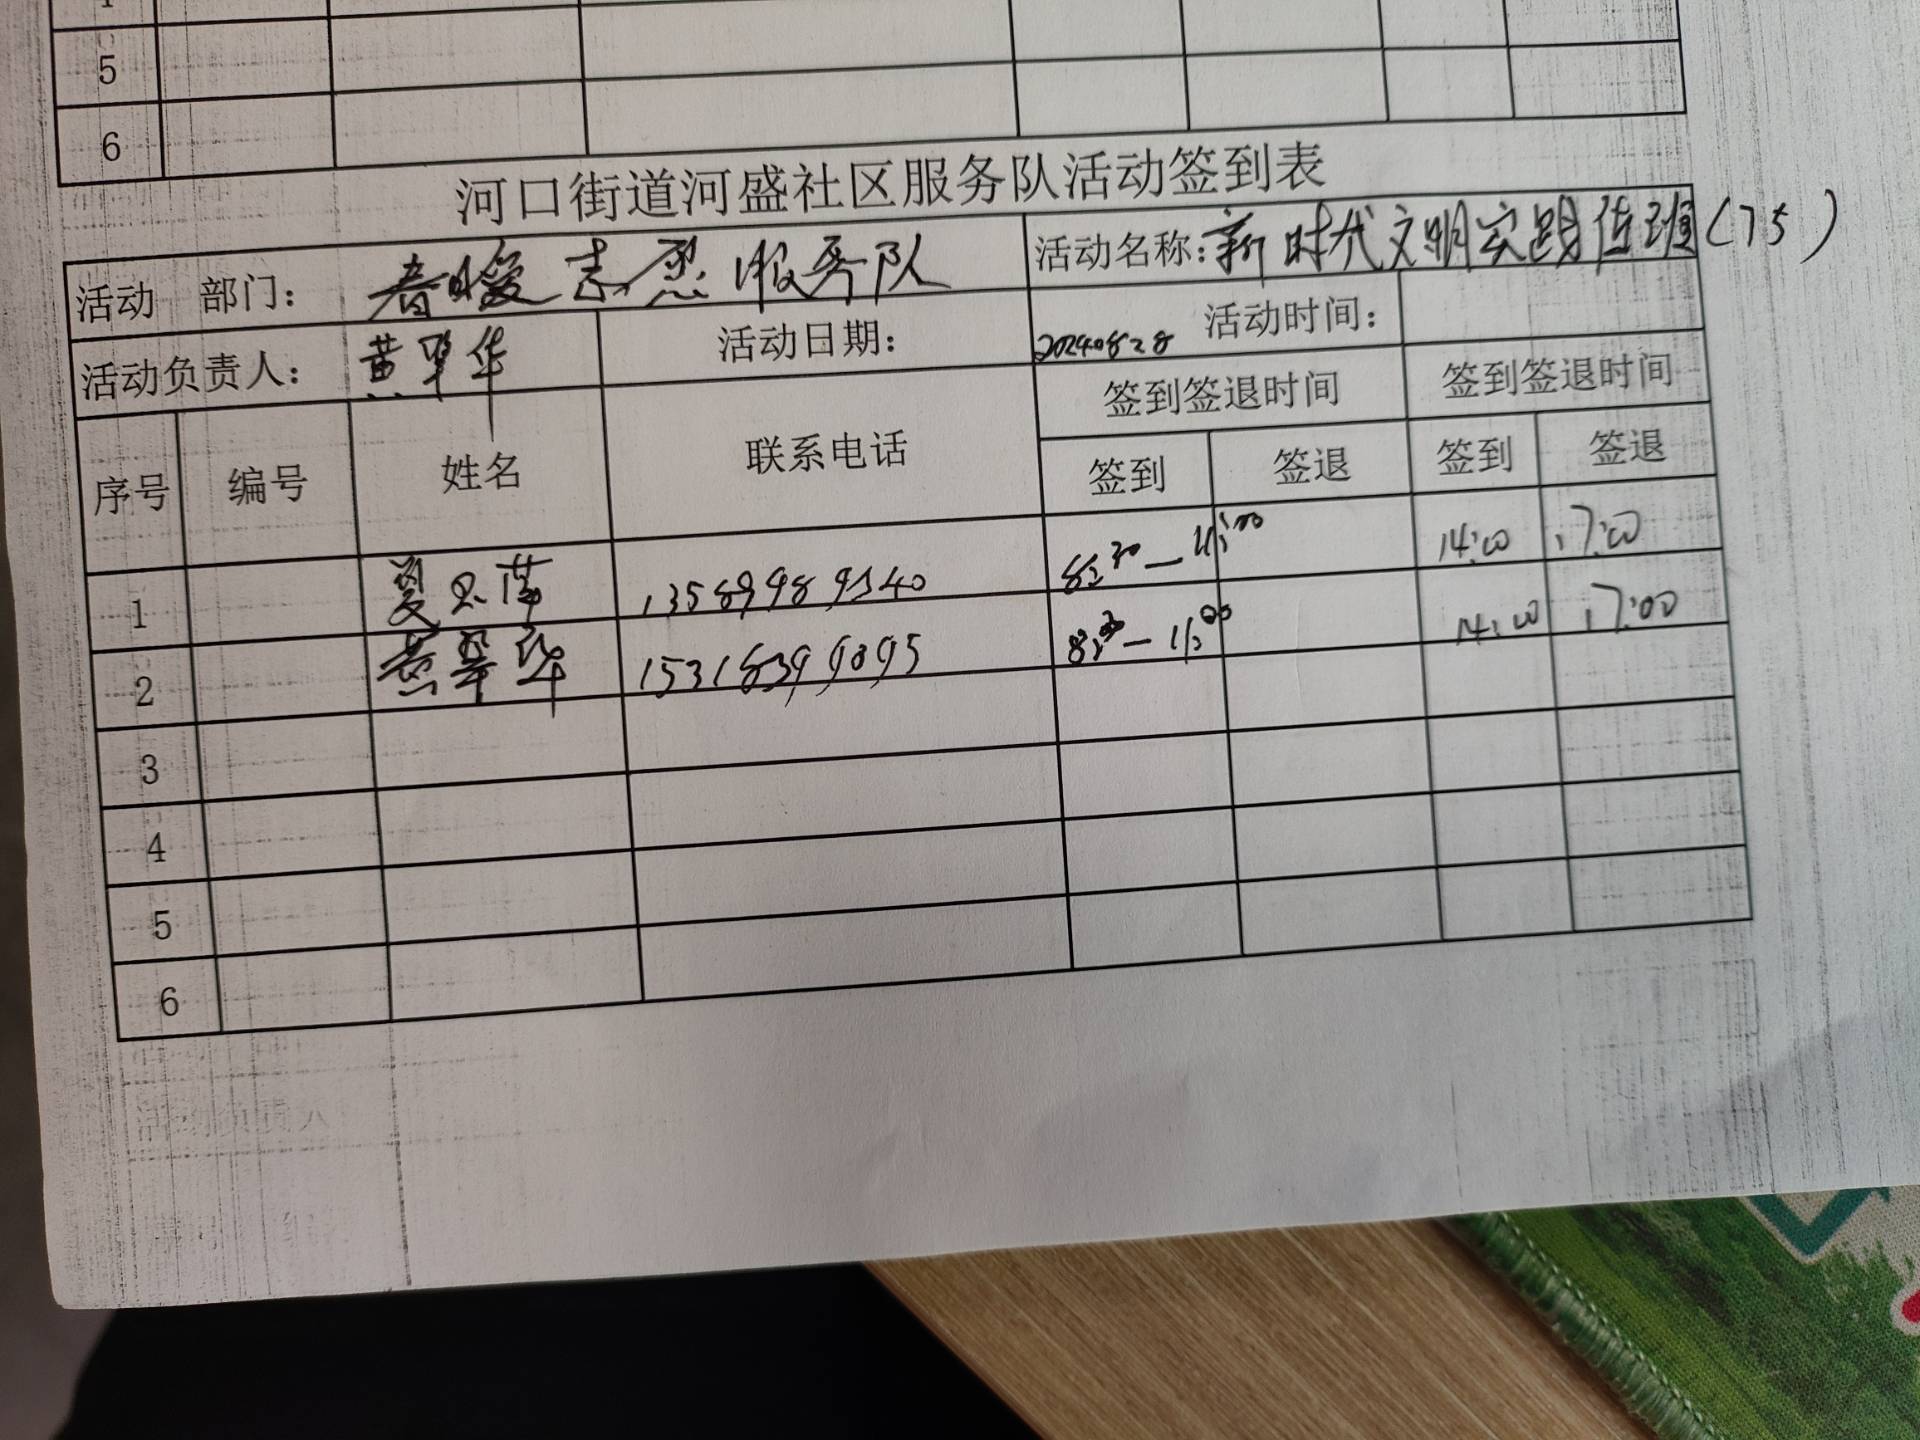 5
6
河口街道河盛社区服务队活动签到表
活动 部门： 春暖志愿服务队 活动名称：新时代文明实践值班(75)
活动负责人： 黄翠华 活动日期： 20240828 活动时间：
序号 编号 姓名 联系电话 签到签退时间 签到签退时间
签到 签退 签到 签退
1 夏 13589989340 8:30—11:00 14:00 17:00
2 黄翠华 15318399095 8:30—11:00 14:00 17:00
3
4
5
6
活动负责人